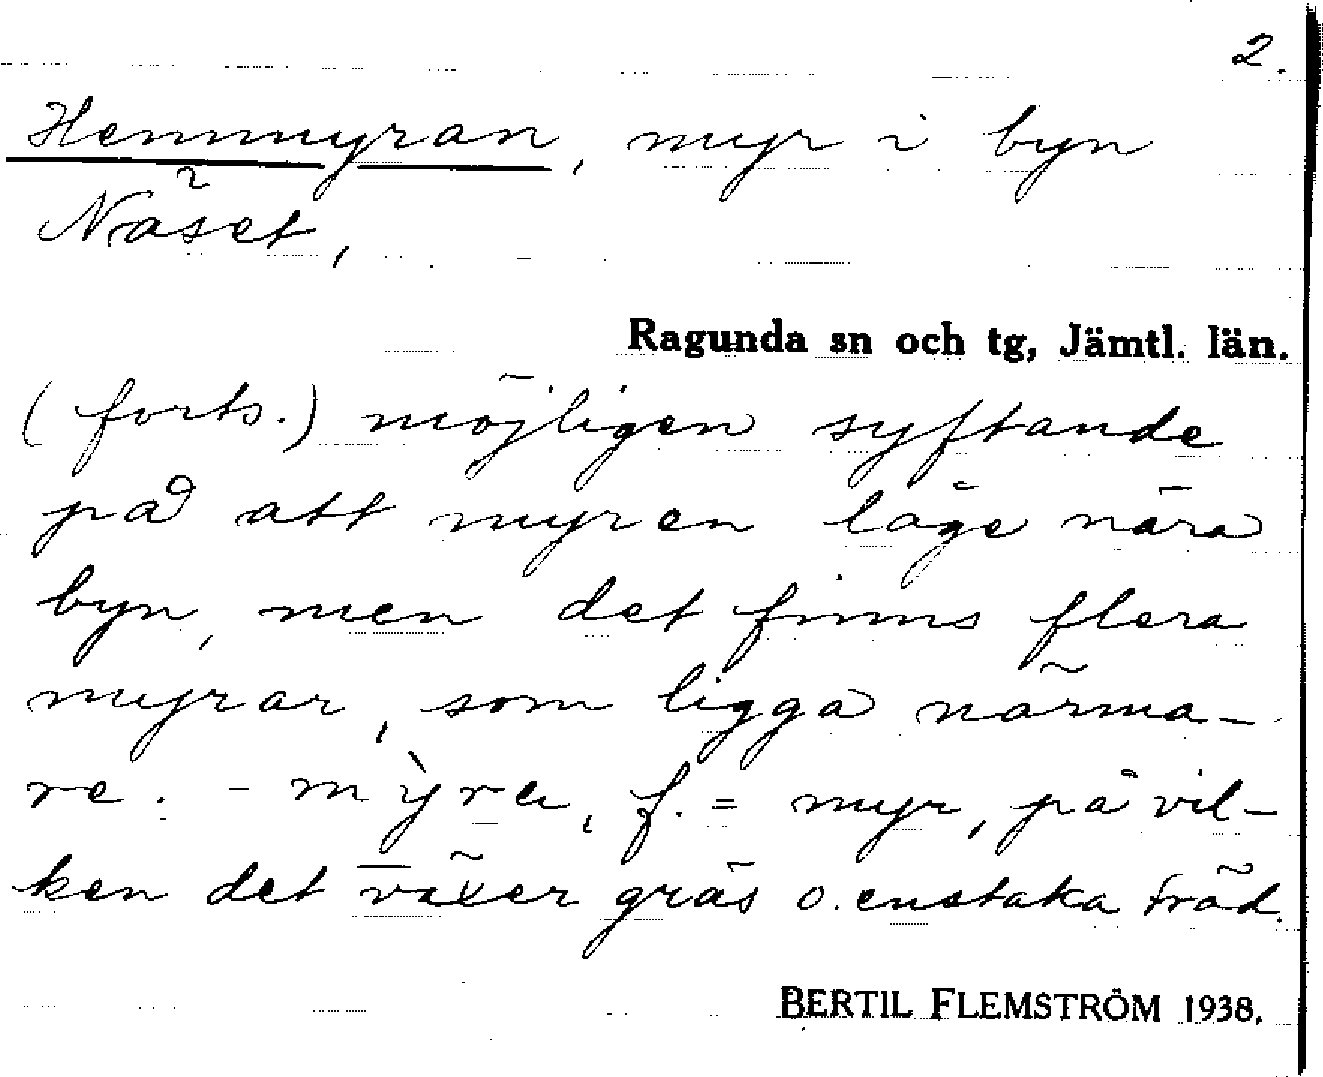 2.
Hemmyran, myr i byn
Näset,
Ragunda sn och tg, Jämtl. län.
(forts.) möjligen syftande
på att myren läge nära
byn, men det finns flera
myrar, som ligga närma-
re. - mỳra, f. = myr, på vil-
ken det växer gräs o. enstaka träd.
BERTIL FLEMSTRÖM 1938.